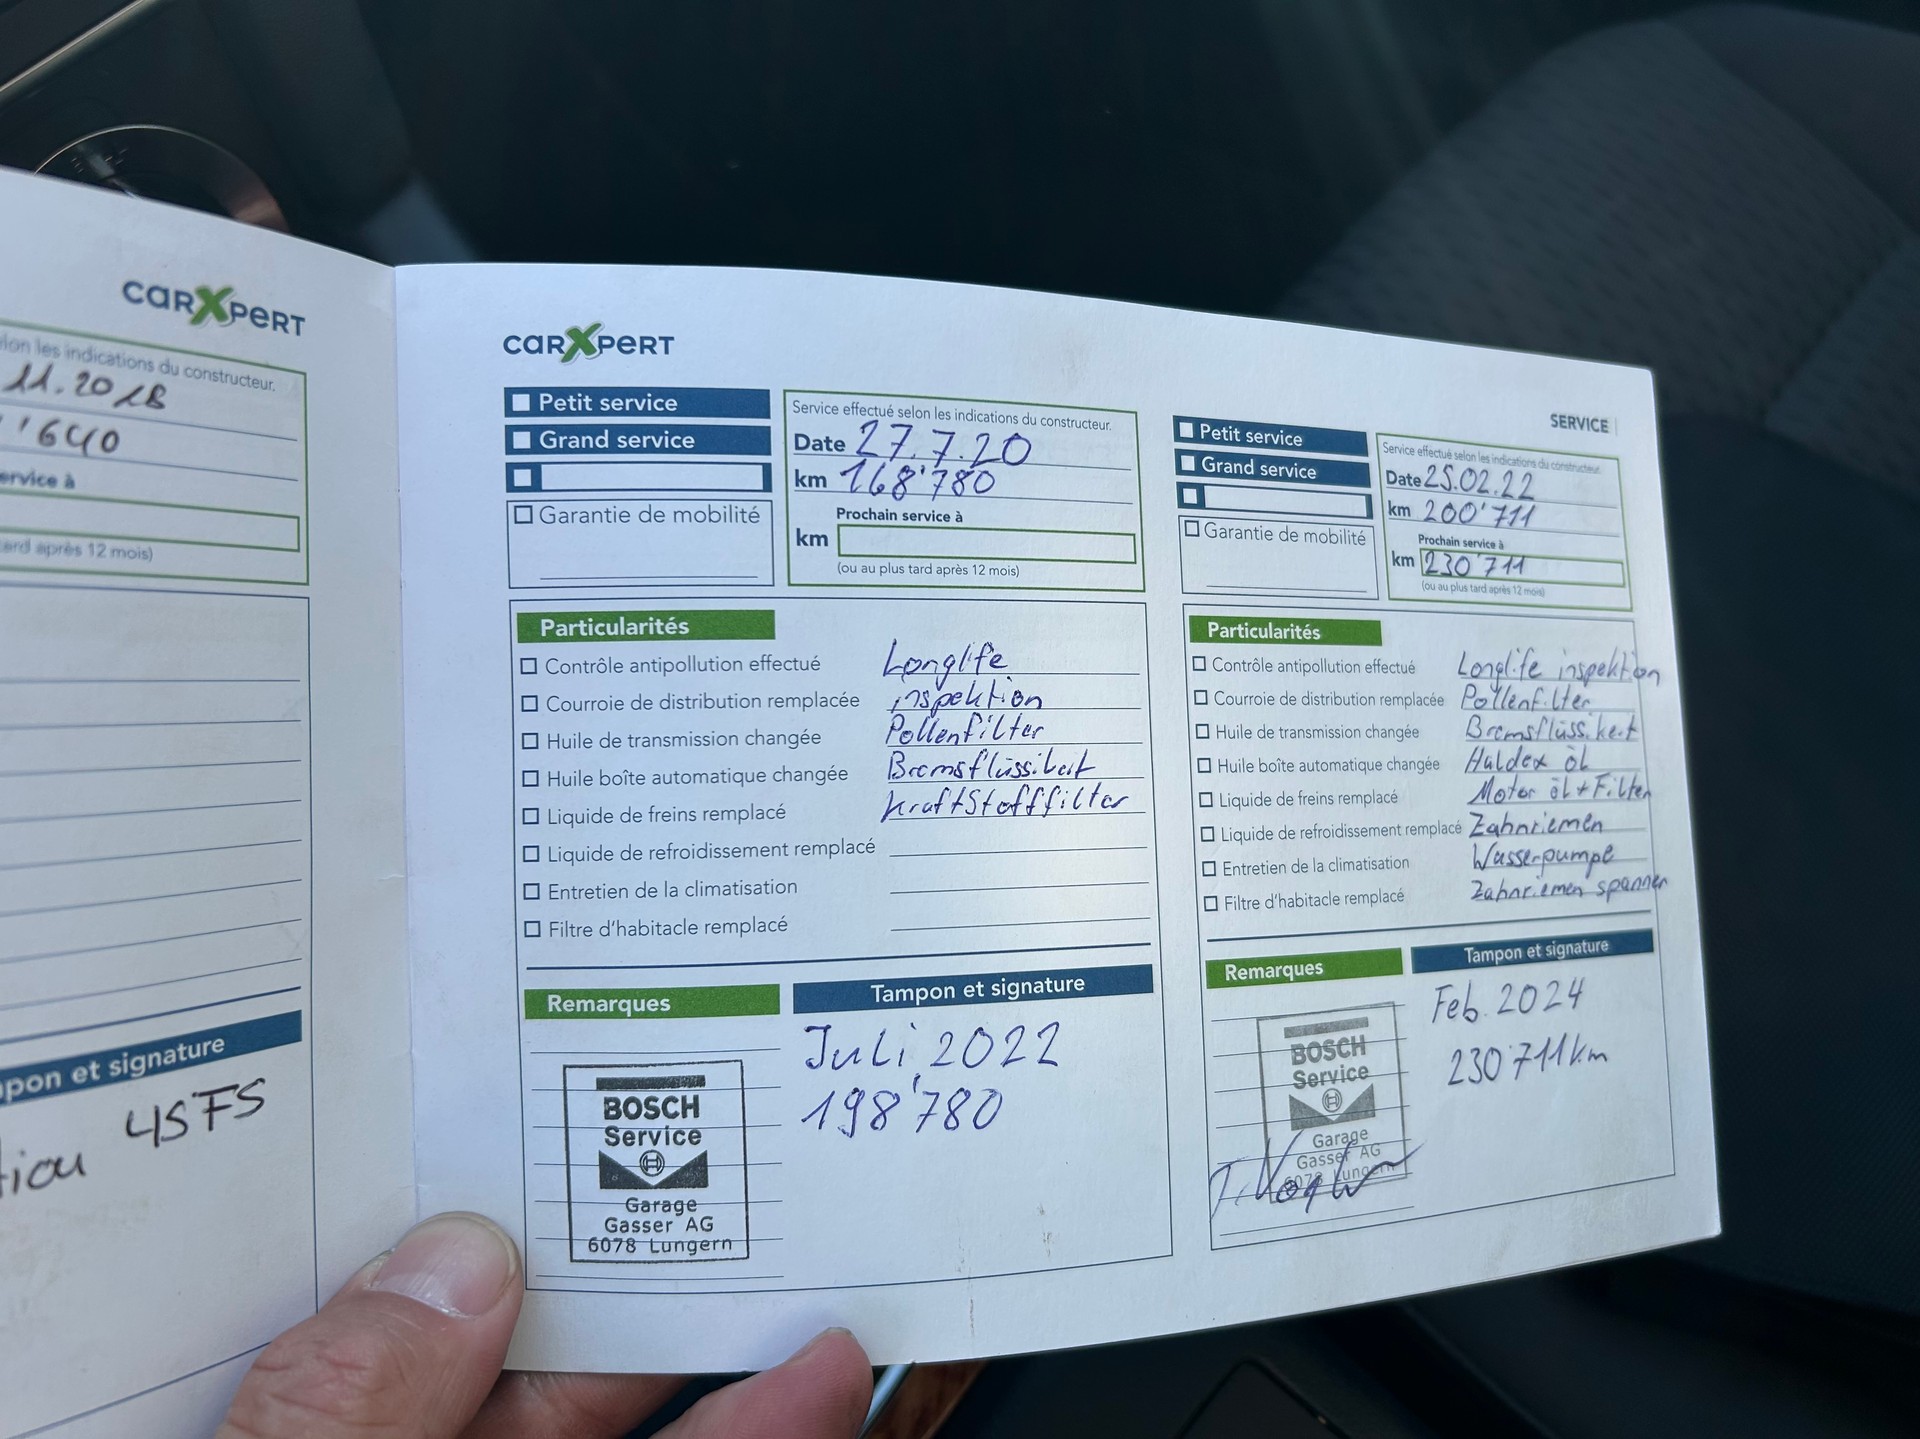 carXpert
selon les indications du constructeur.
11.2018
'640
service à
tard après 12 mois)
Tampon et signature
45FS
carXpert
Petit service
Grand service
Garantie de mobilité
Service effectué selon les indications du constructeur.
Date 27.7.20
km 168'780
Prochain service à
km
(ou au plus tard après 12 mois)
Particularités
Contrôle antipollution effectué
Courroie de distribution remplacée
Huile de transmission changée
Huile boîte automatique changée
Liquide de freins remplacé
Liquide de refroidissement remplacé
Entretien de la climatisation
Filtre d'habitacle remplacé
Longlife
inspektion
Pollenfilter
Bremsflüssikeit
Kraftstofffilter
Remarques
BOSCH
Service
Garage
Gasser AG
6078 Lungern
Tampon et signature
Juli 2022
198'780
SERVICE
Petit service
Grand service
Garantie de mobilité
Service effectué selon les indications du constructeur.
Date 25.02.22
km 200'711
Prochain service à
km 230'711
(ou au plus tard après 12 mois)
Particularités
Contrôle antipollution effectué
Courroie de distribution remplacée
Huile de transmission changée
Huile boîte automatique changée
Liquide de freins remplacé
Liquide de refroidissement remplacé
Entretien de la climatisation
Filtre d'habitacle remplacé
Longlife inspektion
Pollenfilter
Bremsflüssikeit
Haldex öl
Motor öl + Filter
Zahnriemen
Wasserpumpe
Zahnriemen spanner
Remarques
BOSCH
Service
Garage
Gasser AG
6078 Lungern
Tampon et signature
Feb. 2024
230'711 km